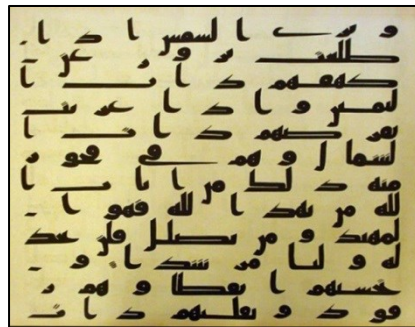 وترى الشمس اذا
طلعت تزور عن
كهفهم ذات ا
ليمين واذا غربت
تقرضهم ذات ا
لشمال وهم في فجوة
منه ذلك من ايات ا
لله من يهد الله فهو ا
لمهتد ومن يضلل فلن تجد
له وليا مرشدا وت
حسبهم ايقظا وهم ر
قود ونقلبهم ذات